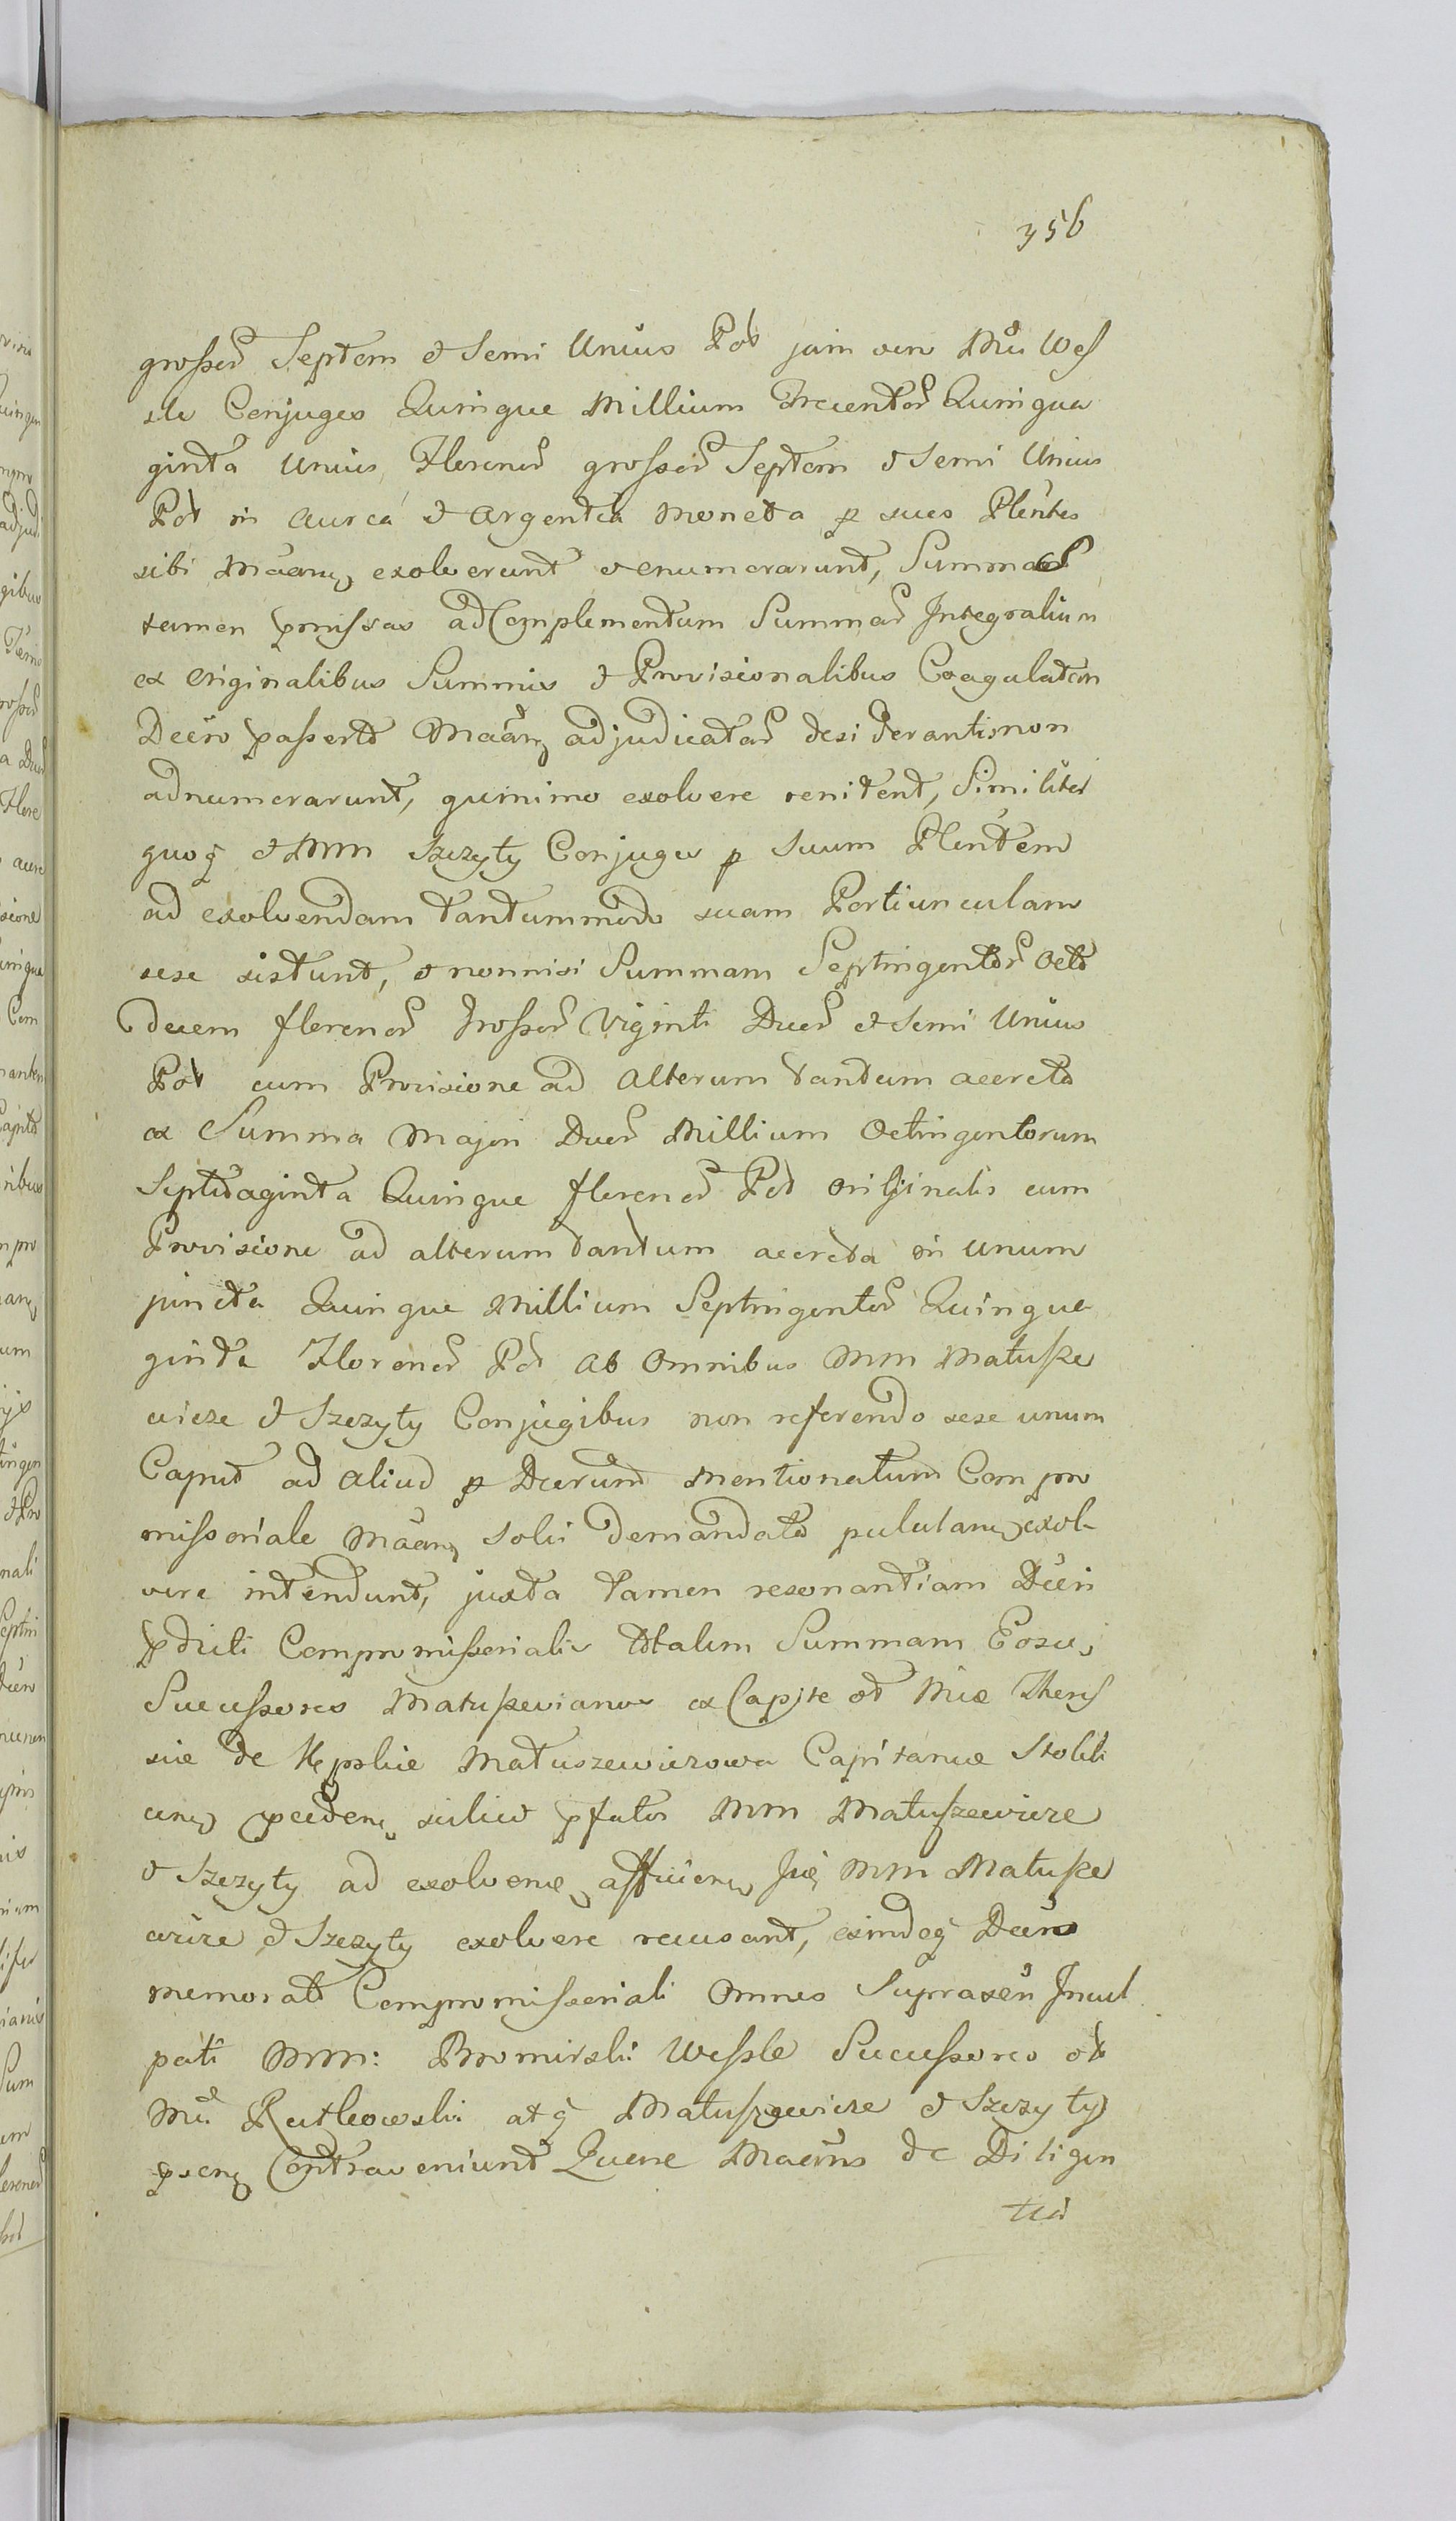 356
grosser Septem et Semi Unius Pol jam vero Mci Wes
sle Conjuges Quinque Millium Trecentor Quinqua
ginta Unius Florenor grossor Septem et Semi Unius
Pol in Aurea et Argentea Moneta p suos Plentes
sibi exolverunt et enumerarunt, Summas
tamen pmissas ad Complementum Summar Integralium
ex Originalibus Summis et Provisionalibus Coagulatem
Decro passerto adjudicatar desiderantis non
adnumerarunt, quinimo exolvere renitent, Similiter
quoq et Mm Szczyty Conjuges p Suum Plentem
ad exolvendam tantummodo suam Portiunculam
sese sistunt, et nonnisi Summam Septingentor Octo
decem florenor Grossor Viginti Duor et Semi Unius
Pol cum Provisione ad Alterum tantum accreto
ex Summa Majori Duor Millium Octingentorum
Septuaginta Quinque florenor Pol Originalis cum
Provisione ad alterum tantum accreta in Unum
juncta Quinque Millium Septingentor Quinqua
ginta Florenor Pol Ab Omnibus Mm Matusze
wicze et Szczyty Conjugibus non referendo sese unum
Caput ad Aliud p Decrum Mentionatum Compro
missoriale solvi demandato exol
vere intendunt, juxta tamen resonantiam Decri
pdicti Compromissorialis totalem Summam
Sucessores Matuszevianos ex Capite ol Mcæ Theres
siæ de Kępskie Matuszewiczowa Capitaneæ Stokli
scilicet pfatos Mm Matuszewicze
et Szczyty ad Mm Matusze
wicze et Szczyty exolvere recusant, exindeq Decro
memorato Compromissoriali Omnes Suprascri Incul
pati Mm: Bromirski Wessle Sucessores ol
Mci Rutkowski atq Matuszewicze et Szczyty
Contraveniunt Quare de Diligen
tia